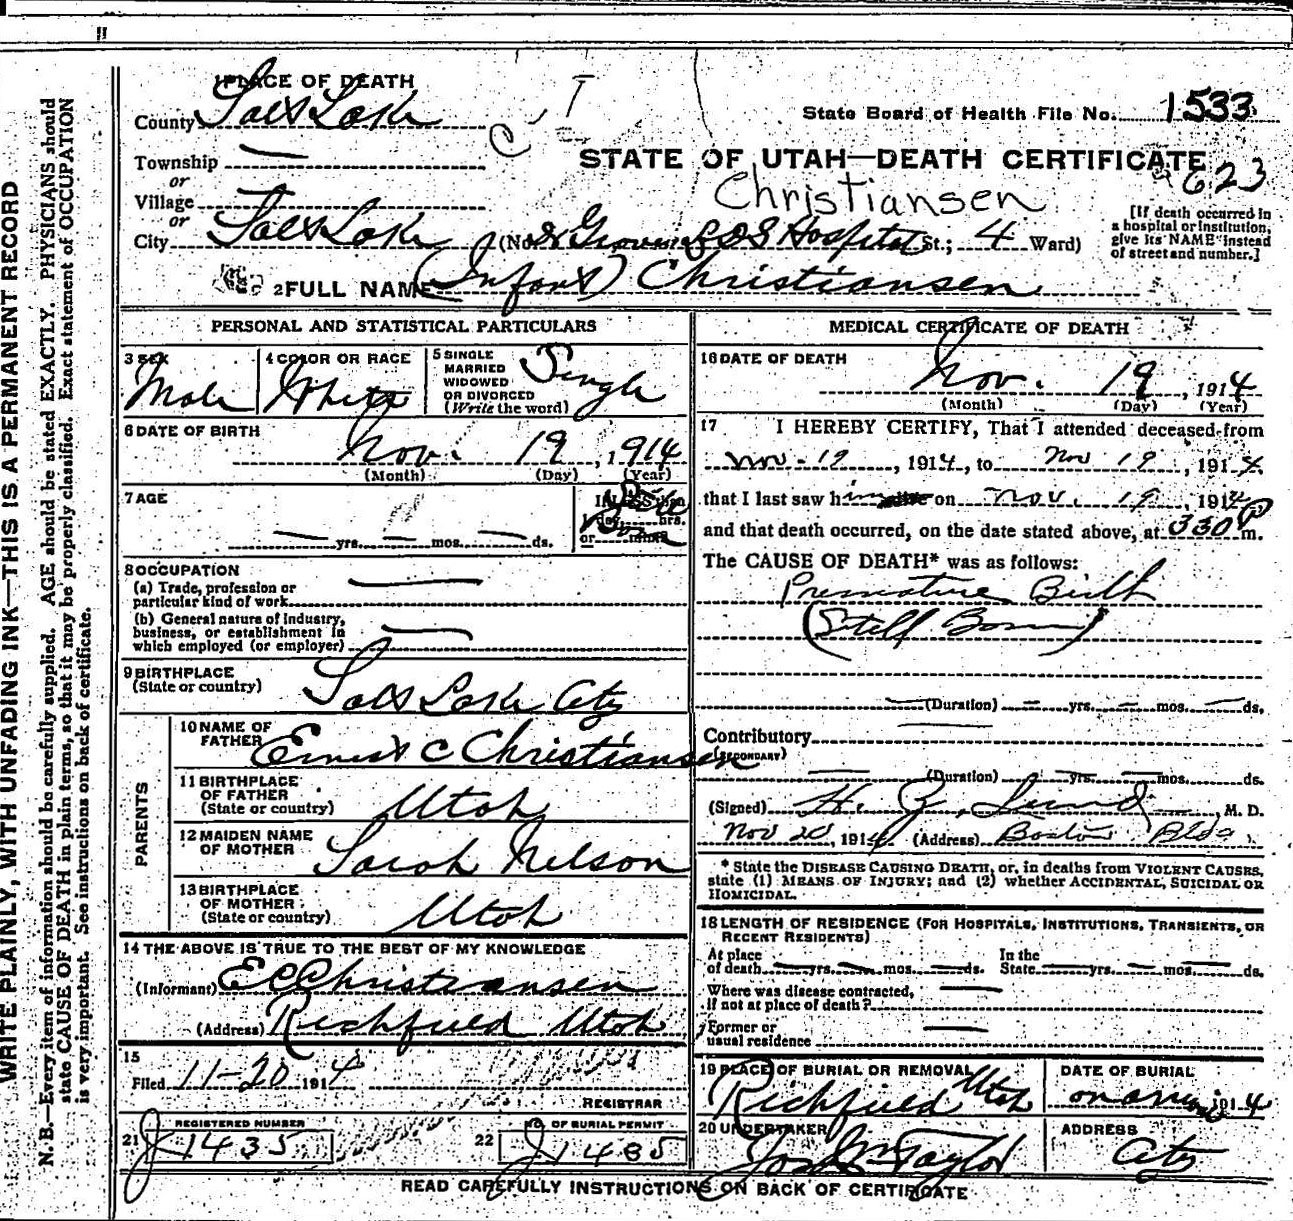 1 PLACE OF DEATH
County Salt Lake
State Board of Health File No. 1533
Township —
STATE OF UTAH—DEATH CERTIFICATE
623
or
Village
Christiansen
or
City Salt Lake (No. LDS Hospital St.; 4 Ward)
[If death occurred in
a hospital or institution,
give its NAME instead
of street and number.]
2 FULL NAME (Infant) Christiansen
PERSONAL AND STATISTICAL PARTICULARS
3 SEX Male
4 COLOR OR RACE White
5 SINGLE
MARRIED
WIDOWED
OR DIVORCED
(Write the word) Single
6 DATE OF BIRTH
Nov. 19, 1914
(Month) (Day) (Year)
7 AGE
— yrs. — mos. — ds.
8 OCCUPATION
(a) Trade, profession or
particular kind of work —
(b) General nature of industry,
business, or establishment in
which employed (or employer) —
9 BIRTHPLACE
(State or country) Salt Lake City
PARENTS
10 NAME OF
FATHER Ernest C Christiansen
11 BIRTHPLACE
OF FATHER
(State or country) Utah
12 MAIDEN NAME
OF MOTHER Sarah Nelson
13 BIRTHPLACE
OF MOTHER
(State or country) Utah
14 THE ABOVE IS TRUE TO THE BEST OF MY KNOWLEDGE
(Informant) E C Christiansen
(Address) Richfield Utah
15
Filed 11-20 1914
REGISTRAR
REGISTERED NUMBER
21 J 1435
NO. OF BURIAL PERMIT
22 J 1485
MEDICAL CERTIFICATE OF DEATH
16 DATE OF DEATH
Nov. 19, 1914
(Month) (Day) (Year)
17 I HEREBY CERTIFY, That I attended deceased from
Nov - 19, 1914, to Nov 19, 1914
that I last saw him on Nov. 19, 1914
and that death occurred, on the date stated above, at 330 P m.
The CAUSE OF DEATH* was as follows:
Premature Birth
(Still Born)
(Duration) — yrs. — mos. — ds.
Contributory —
(SECONDARY)
— (Duration) — yrs. — mos. — ds.
(Signed) H. Z. Lund, M. D.
Nov 20, 1914 (Address) Boston Bldg.
* State the DISEASE CAUSING DEATH, or, in deaths from VIOLENT CAUSES,
state (1) MEANS OF INJURY; and (2) whether ACCIDENTAL, SUICIDAL OR
HOMICIDAL.
18 LENGTH OF RESIDENCE (FOR HOSPITALS, INSTITUTIONS, TRANSIENTS, OR
RECENT RESIDENTS)
At place
of death — yrs. — mos. — ds.
In the
State — yrs. — mos. — ds.
Where was disease contracted,
If not at place of death? —
Former or
usual residence —
19 PLACE OF BURIAL OR REMOVAL
Richfield Utah
DATE OF BURIAL
1914
20 UNDERTAKER
Jos Wm Taylor
ADDRESS
City
READ CAREFULLY INSTRUCTIONS ON BACK OF CERTIFICATE
WRITE PLAINLY, WITH UNFADING INK—THIS IS A PERMANENT RECORD
N. B.—Every item of information should be carefully supplied. AGE should be stated EXACTLY. PHYSICIANS should
state CAUSE OF DEATH in plain terms, so that it may be properly classified. Exact statement of OCCUPATION
is very important. See instructions on back of certificate.